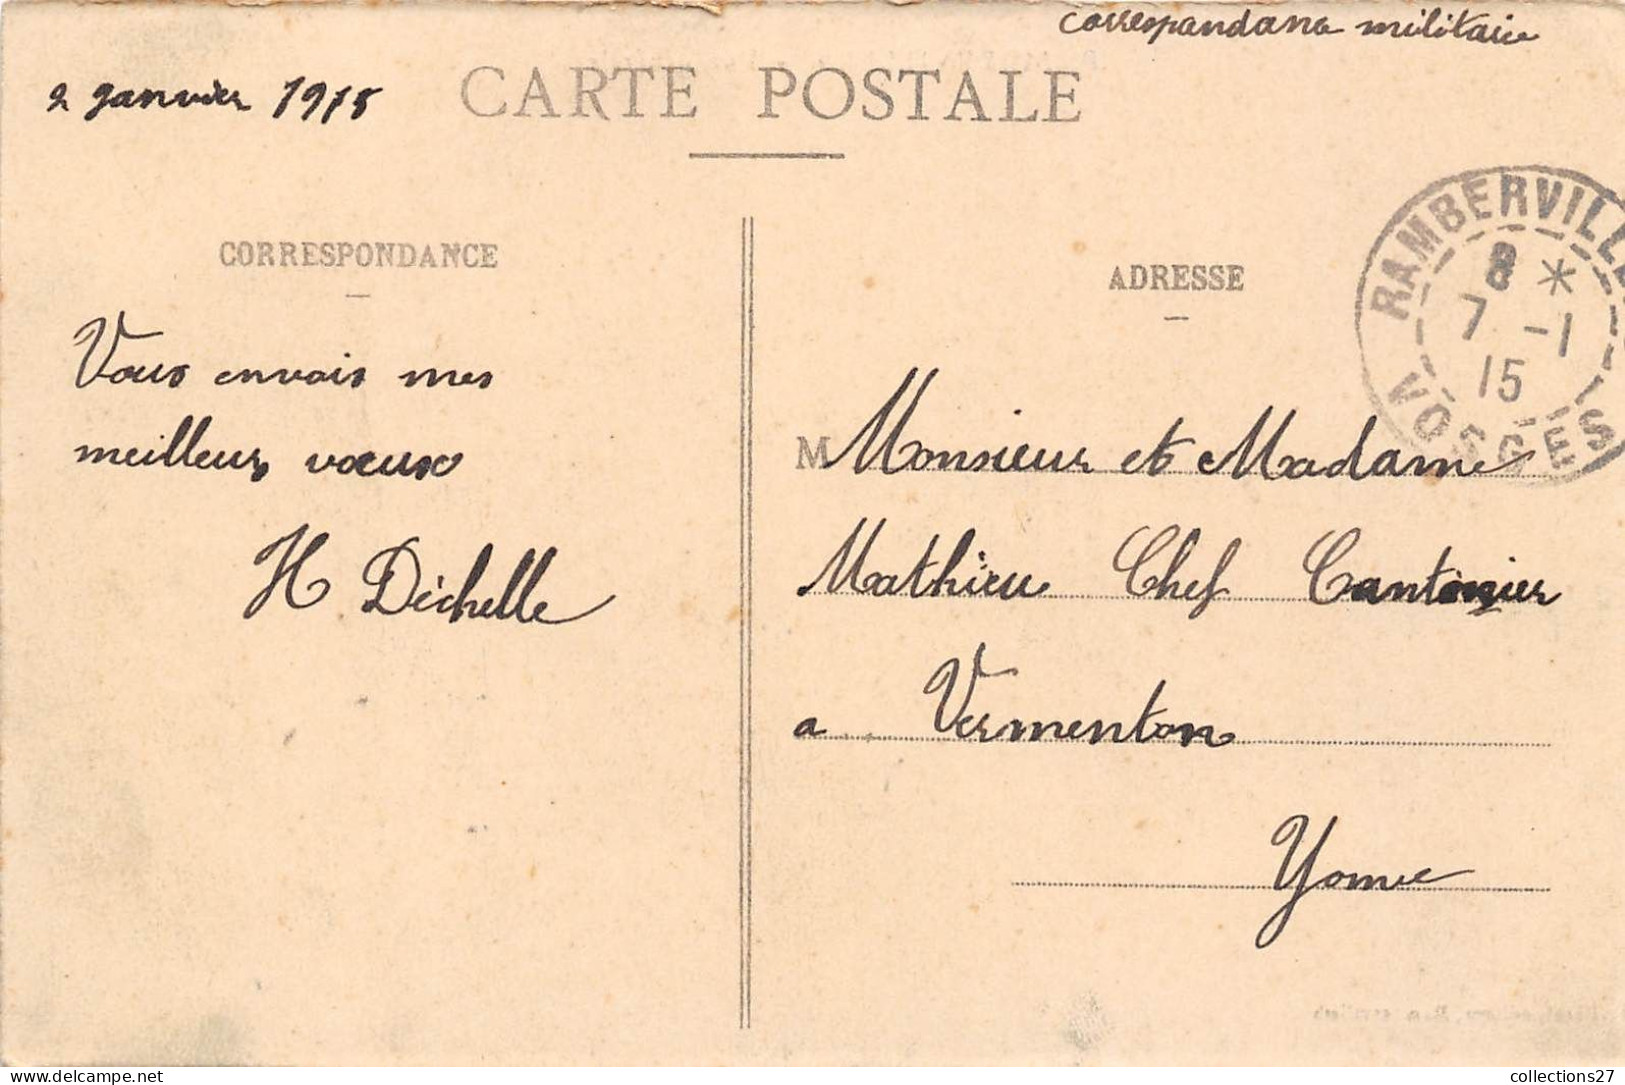 correspandana militaire
2 janvier 1915
CARTE POSTALE
RAMBERVILLERS
8 *
7 -1
15
VOSGES
CORRESPONDANCE
Vous envois mes
meilleurs voeux
H Déchelle
ADRESSE
M Monsieur et Madame
Mathieu Chef Cantonier
a Vermenton
Yonne
collections27